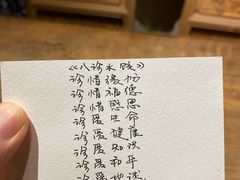 珍惜缘份
珍惜福德
珍惜感恩
珍爱生命
珍爱健康
珍爱知识
珍爱和平
珍爱地球